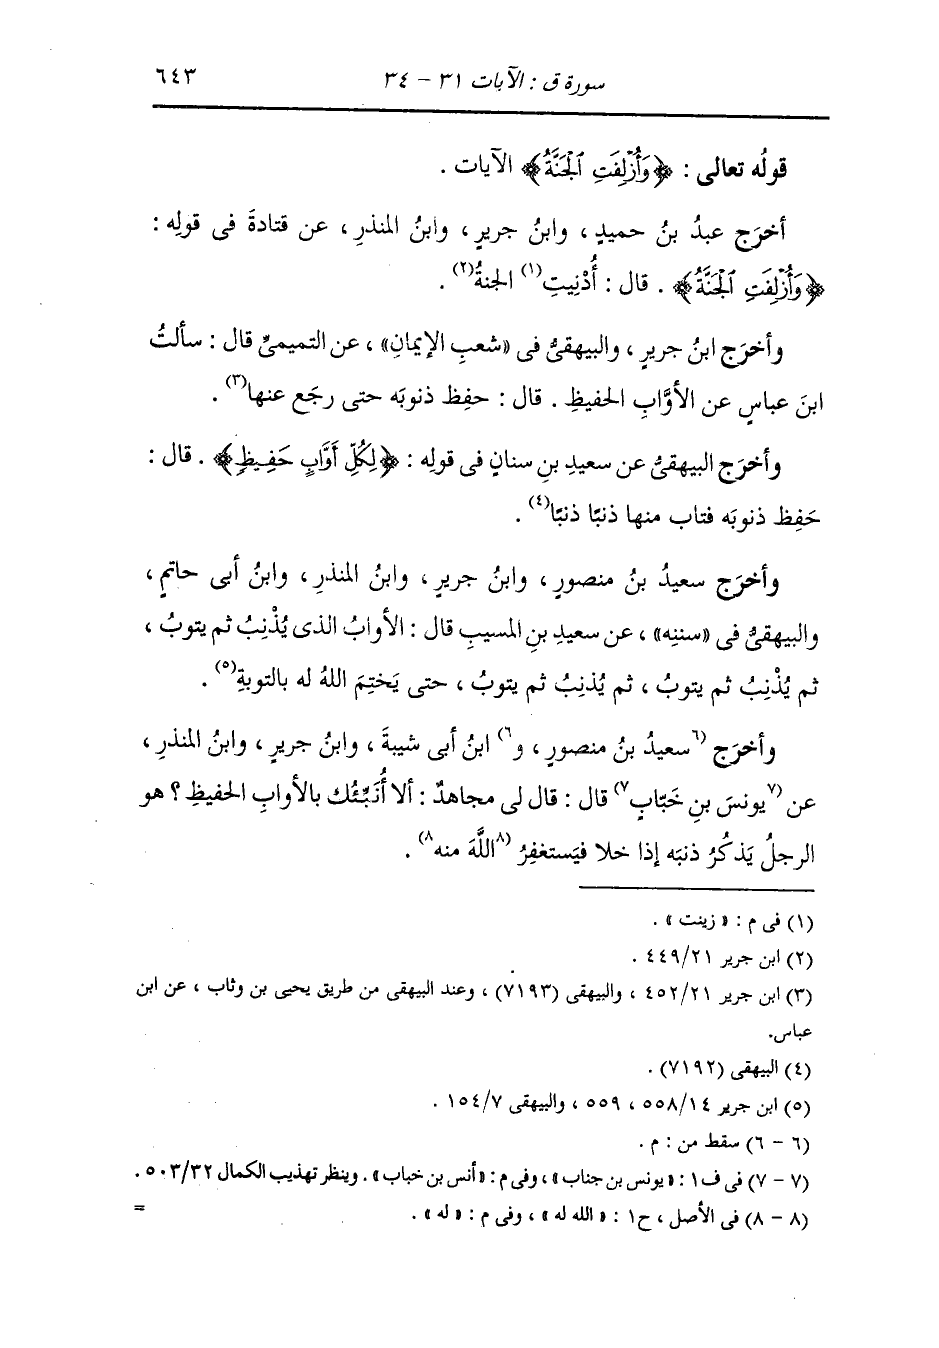 سورة ق : الآيات ٣١ - ٣٤ ٦٤٣
قولُه تعالى : ﴿وَأُزْلِفَتِ ٱلْجَنَّةُ﴾ الآيات .
أخرَج عبدُ بنُ حميدٍ ، وابنُ جريرٍ ، وابنُ المنذرِ ، عن قتادةَ فى قولِه :
﴿وَأُزْلِفَتِ ٱلْجَنَّةُ﴾ . قال : أُدْنِيتِ(١) الجنةُ(٢) .
وأخرَج ابنُ جريرٍ ، والبيهقىُّ فى «شعبِ الإيمانِ» ، عن التميمىِّ قال : سألتُ
ابنَ عباسٍ عن الأوَّابِ الحفيظِ . قال : حفِظ ذنوبَه حتى رجَع عنها(٣) .
وأخرَج البيهقىُّ عن سعيدِ بنِ سنانٍ فى قولِه : ﴿لِكُلِّ أَوَّابٍ حَفِيظٍ﴾ . قال :
حَفِظ ذنوبَه فتاب منها ذنبًا ذنبًا(٤) .
وأخرَج سعيدُ بنُ منصورٍ ، وابنُ جريرٍ ، وابنُ المنذرِ ، وابنُ أبى حاتمٍ ،
والبيهقىُّ فى «سننِه» ، عن سعيدِ بنِ المسيبِ قال : الأوابُ الذى يُذْنِبُ ثم يتوبُ ،
ثم يُذْنِبُ ثم يتوبُ ، ثم يُذنِبُ ثم يتوبُ ، حتى يَختِمَ اللهُ له بالتوبةِ(٥) .
وأخرَج (٦سعيدُ بنُ منصورٍ ، و٦) ابنُ أبى شيبةَ ، وابنُ جريرٍ ، وابنُ المنذرِ ،
عن (٧يونسَ بنِ خَبّابٍ٧) قال : قال لى مجاهدٌ : ألا أُنَبِّئُك بالأوابِ الحفيظِ ؟ هو
الرجلُ يَذكُرُ ذنبَه إذا خلا فيَستغفِرُ (٨اللَّهَ منه٨) .
(١) فى م : « زينت » .
(٢) ابن جرير ٤٤٩/٢١ .
(٣) ابن جرير ٤٥٢/٢١ ، والبيهقى (٧١٩٣) ، وعند البيهقى من طريق يحيى بن وثاب ، عن ابن
عباس.
(٤) البيهقى (٧١٩٢) .
(٥) ابن جرير ٥٥٨/١٤ ، ٥٥٩ ، والبيهقى ١٥٤/٧ .
(٦ - ٦) سقط من : م .
(٧ - ٧) فى ف١ : «يونس بن جناب» ، وفى م : «أنس بن خباب» . وينظر تهذيب الكمال ٥٠٣/٣٢ .
(٨ - ٨) فى الأصل ، ح١ : « الله له » ، وفى م : « له » .
=